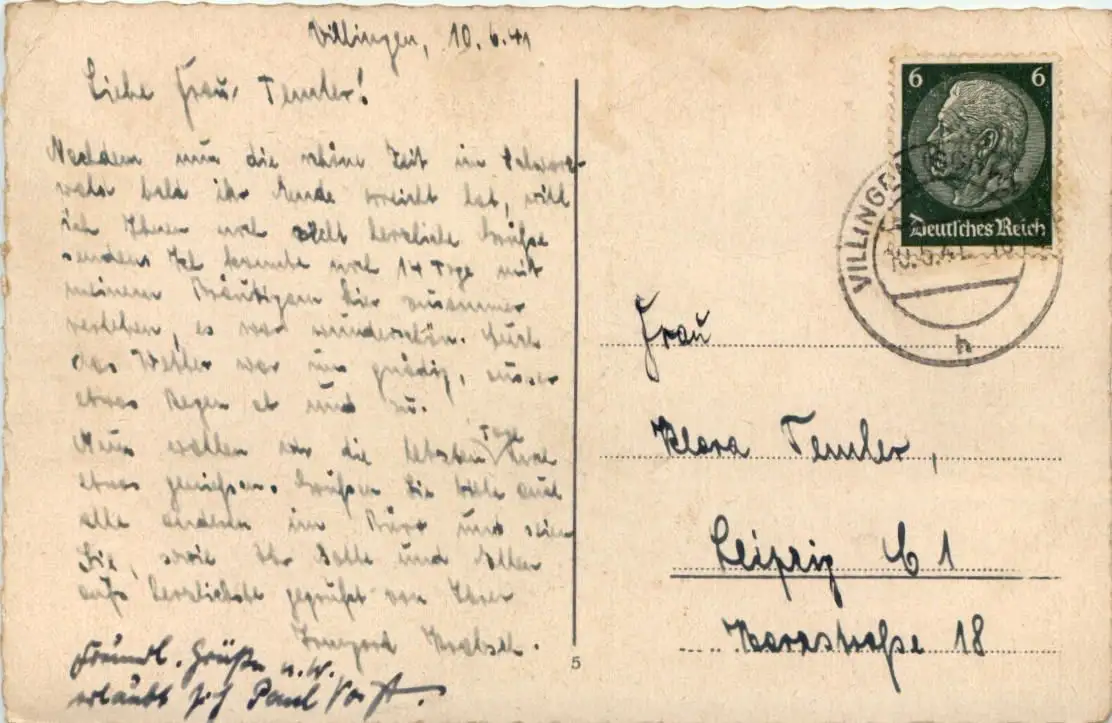 Villingen, 10.6.41
Liebe Frau Temler!
Nachdem nun die schöne Zeit im Schwarz-
wald bald ihr Ende erreicht hat, will
ich Ihnen noch herzliche Grüße
senden. Ich konnte noch 14 Tage mit
meinem Bräutigam hier zusammen
verleben, es war wunderschön. Auch
das Wetter war uns gnädig, ausser
etwas Regen ab und zu.
Nun wollen wir die letzten Tage noch
etwas geniessen. Grüssen Sie bitte auch
alle anderen im Büro und seien
Sie, sowie Ihr Gatte und Eltern
aufs herzlichste gegrüßt von Ihrer
Irmgard
Freundl. Grüße u.
erlaubt sich Paul
5
6 6
Deutsches Reich
VILLINGEN
10.6.41
h
Frau
Klara Temler,
Leipzig C 1
18